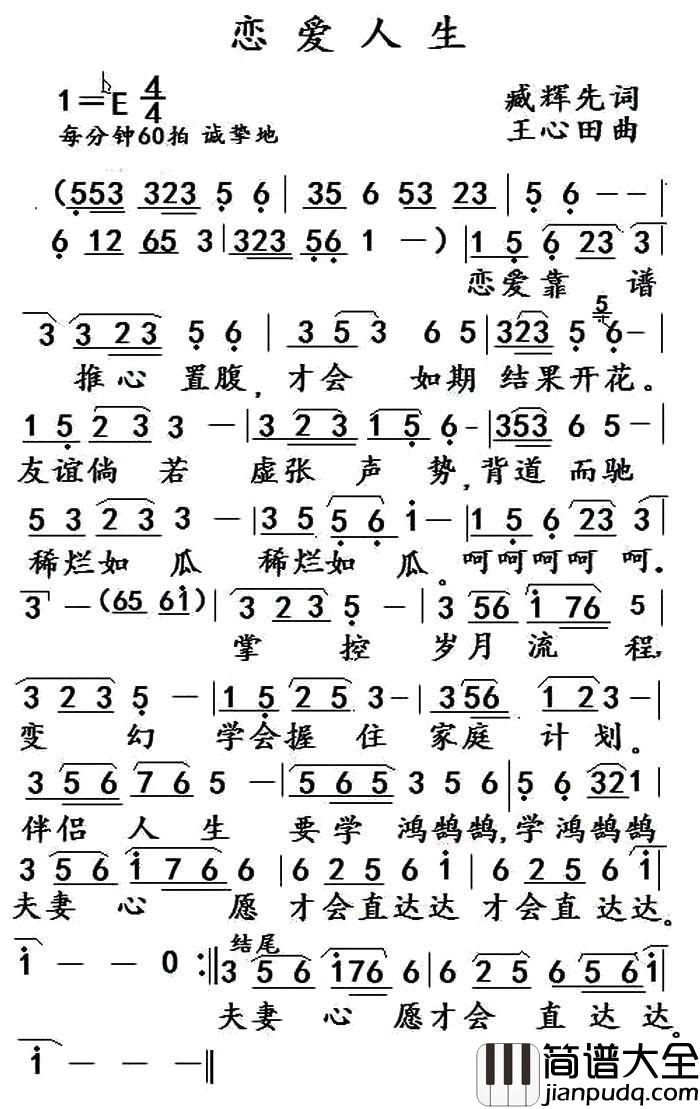 恋爱人生
1=♭E 4/4
臧辉先词
每分钟60拍 诚挚地
王心田曲
(553 323 5 6 | 35 6 53 23 | 5 6 - - |
6 12 65 3 | 323 56 1 -) | 1 5 6 23 3 |
恋爱靠 谱
3 3 23 5 6 | 3 5 3 6 5 | 323 5 5 6 - |
推心 置腹，才会 如期 结果开花。
1 5 2 3 3 - | 3 2 3 1 5 6 - | 353 6 5 - |
友谊倘 若 虚张 声 势，背道 而驰
5 3 2 3 3 - | 3 5 5 6 i - | 1 5 6 23 3 |
稀烂如 瓜 稀烂如 瓜。呵呵呵呵 呵．
3 - (65 6i) | 3 2 3 5 - | 3 56 i 76 5 |
掌 控 岁月 流 程，
3 2 3 5 - | 1 5 2 5 3 - | 356 1 2 3 - |
变 幻 学会握 住 家庭 计 划。
3 5 6 7 6 5 - | 5 6 5 3 5 6 | 5 6 321 |
伴侣 人 生 要学 鸿鹄鹄，学鸿鹄鹄
3 5 6 i 7 6 6 | 6 2 5 6 i | 6 2 5 6 i |
夫妻 心 愿 才会直达达 才会直 达达。
i - - 0 :‖ 3 5 6 i76 6 | 6 2 5 5 6 i |
结尾
夫妻 心 愿才会 直达 达。
i - - - ‖
简谱大全
jianpudq.com